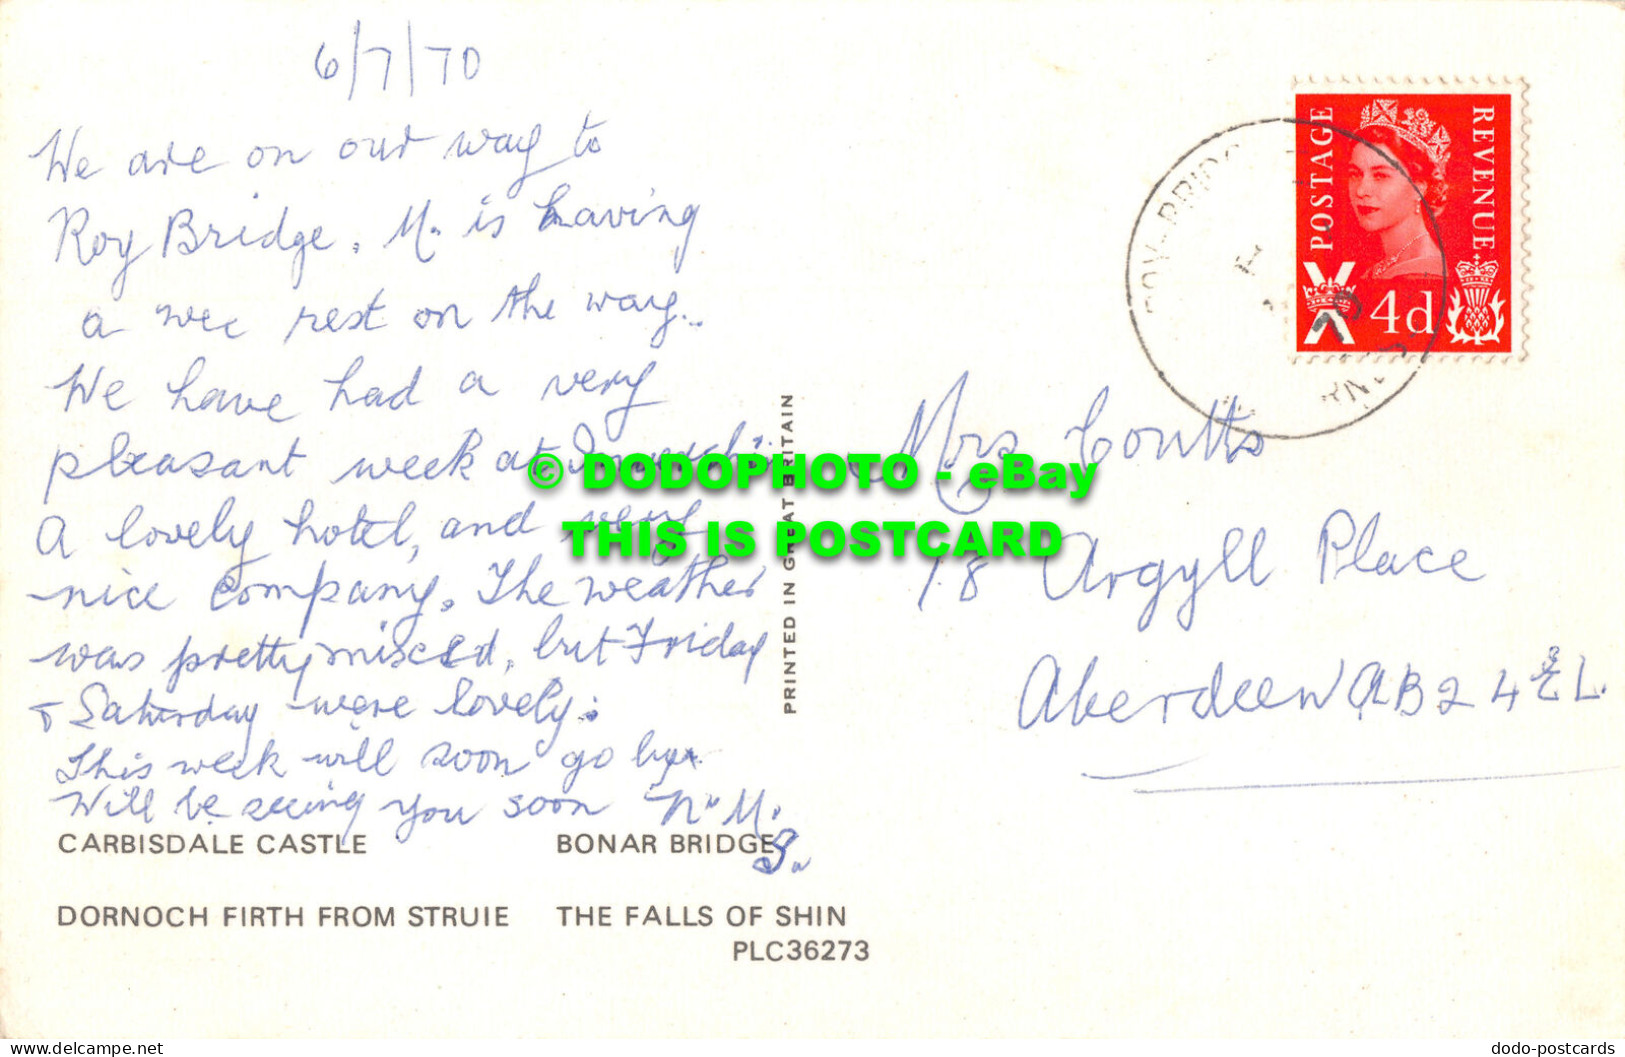 6/7/70
We are on our way to
Roy Bridge. M. is having
a wee rest on the way..
We have had a very
pleasant week at
A lovely hotel, and very
nice company. The weather
was pretty mixed, but Friday
& Saturday were lovely.
This week will soon go by.
Will be seeing you soon N. M.
J.
CARBISDALE CASTLE BONAR BRIDGE
DORNOCH FIRTH FROM STRUIE THE FALLS OF SHIN
PLC36273
PRINTED IN GREAT BRITAIN
© DODOPHOTO - eBay
THIS IS POSTCARD
POSTAGE
REVENUE
4d
ROY-BRIDGE
70
Mrs Coutts
18 Argyll Place
Aberdeen AB2 4EL.
© DELCAMPE.NET
dodo-postcards